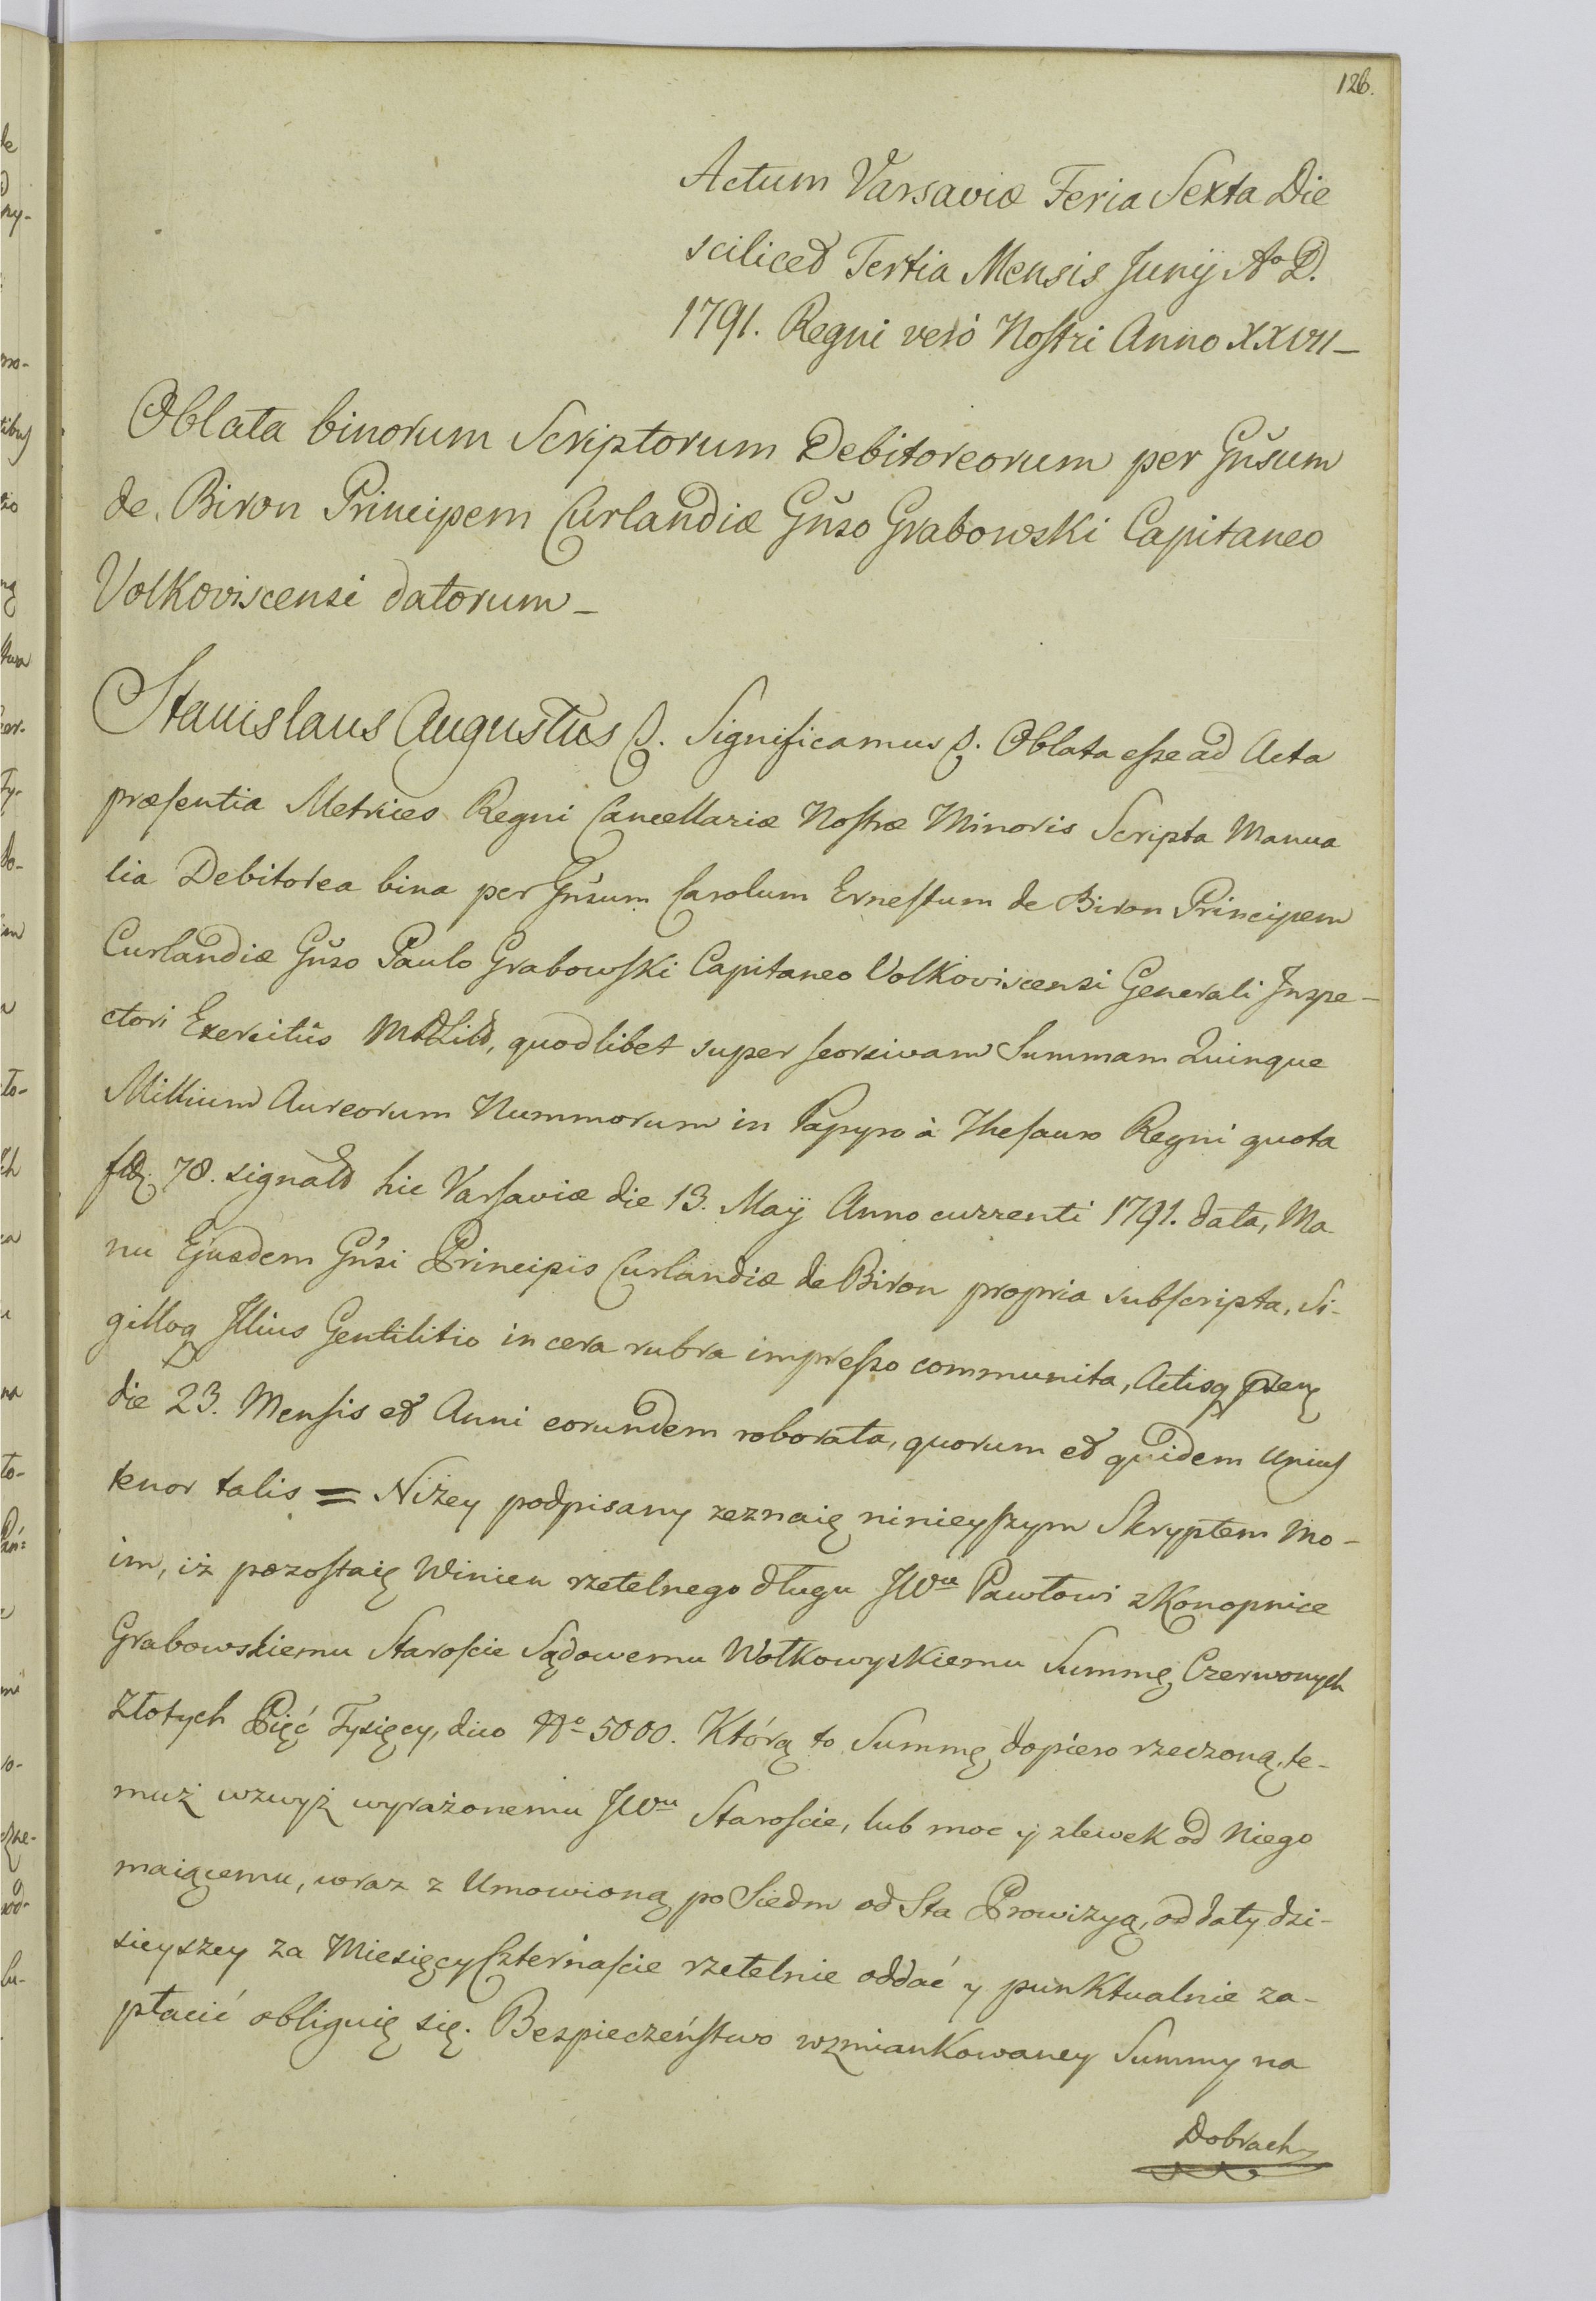 126.
Actum Varsaviæ Feria Sexta Die
scilicet Tertia Mensis Junij Aº D.
1791. Regni verò Nostri Anno XXVII_
Oblata binorum Scriptorum Debitoreorum per Gñsum
de Biron Principem Curlandiæ Gñso Grabowski Capitaneo
Volkoviscensi datorum_
Stanislaus Augustus &. Significamus &. Oblata esse ad Acta
præsentia Metrices Regni Cancellariæ Nostræ Minoris Scripta Manua
lia Debitorea bina per Gñsum Carolum Ernestum de Biron Principem
Curlandiæ Gñso Paulo Grabowski Capitaneo Volkoviscensi Generali Inspe-
ctori Exercitûs MDLitt, quodlibet super seorsivam Summam Quinque
Millium Aureorum Nummorum in Papyro à Thesauro Regni quota
78. signato hic Varsaviæ die 13. Maij Anno currenti 1791. data, Ma
nu Ejusdem Gñsi Principis Curlandiæ de Biron propria subscripta, Si-
gilloq Illius Gentilitio in cera rubra impresso communita, Actisq
die 23. Mensis et Anni eorundem roborata, quorum et quidem Unius
tenor talis = Niżey podpisany zeznaię ninieyszym Skryptem Mo-
im, iż pozostaię Winien rzetelnego długu JWu Pawłowi z Konopnice
Grabowskiemu Staroście Sądowemu Wołkowyskiemu Summę Czerwonych
Złotych Pięć Tysięcy, dico Nº 5000. Którą to Summę, dopiero rzeczoną, te-
muż wzwyż wyrażonemu JWu Staroście, lub moc y zlewek od Niego
maiącemu, wraz z Umowioną po Siedm od Sta Prowizyą, od daty dzi-
sieyszey za Miesięcy Czternaście rzetelnie oddać y punktualnie za-
płacić obliguię się. Bezpieczeństwo wzmiankowaney Summy na
Dobrach